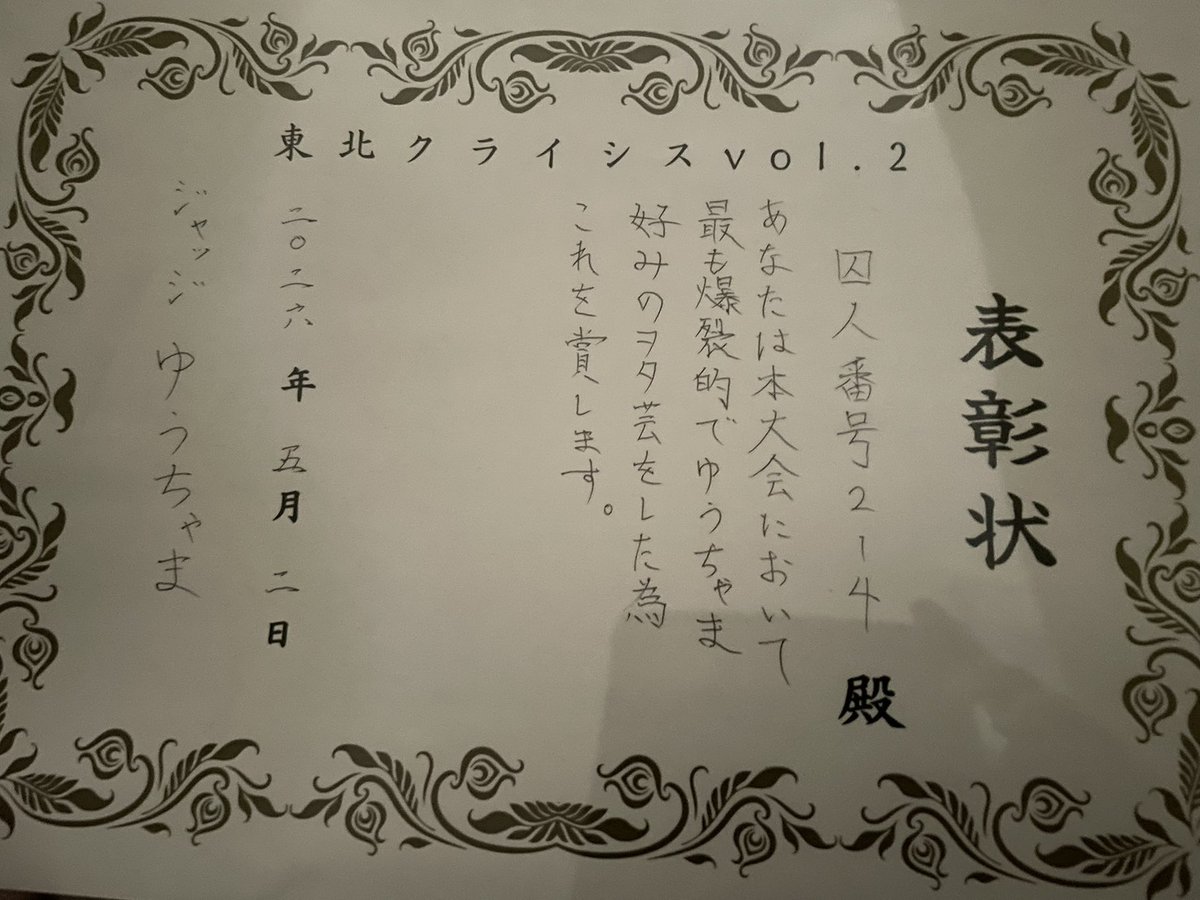 東北クライシスvol.2
表彰状
囚人番号214 殿
あなたは本大会において
最も爆裂的でゆうちゃま
好みのヲタ芸をした為
これを賞します。
二〇二六年 五月 二日
ジャッジ ゆうちゃま